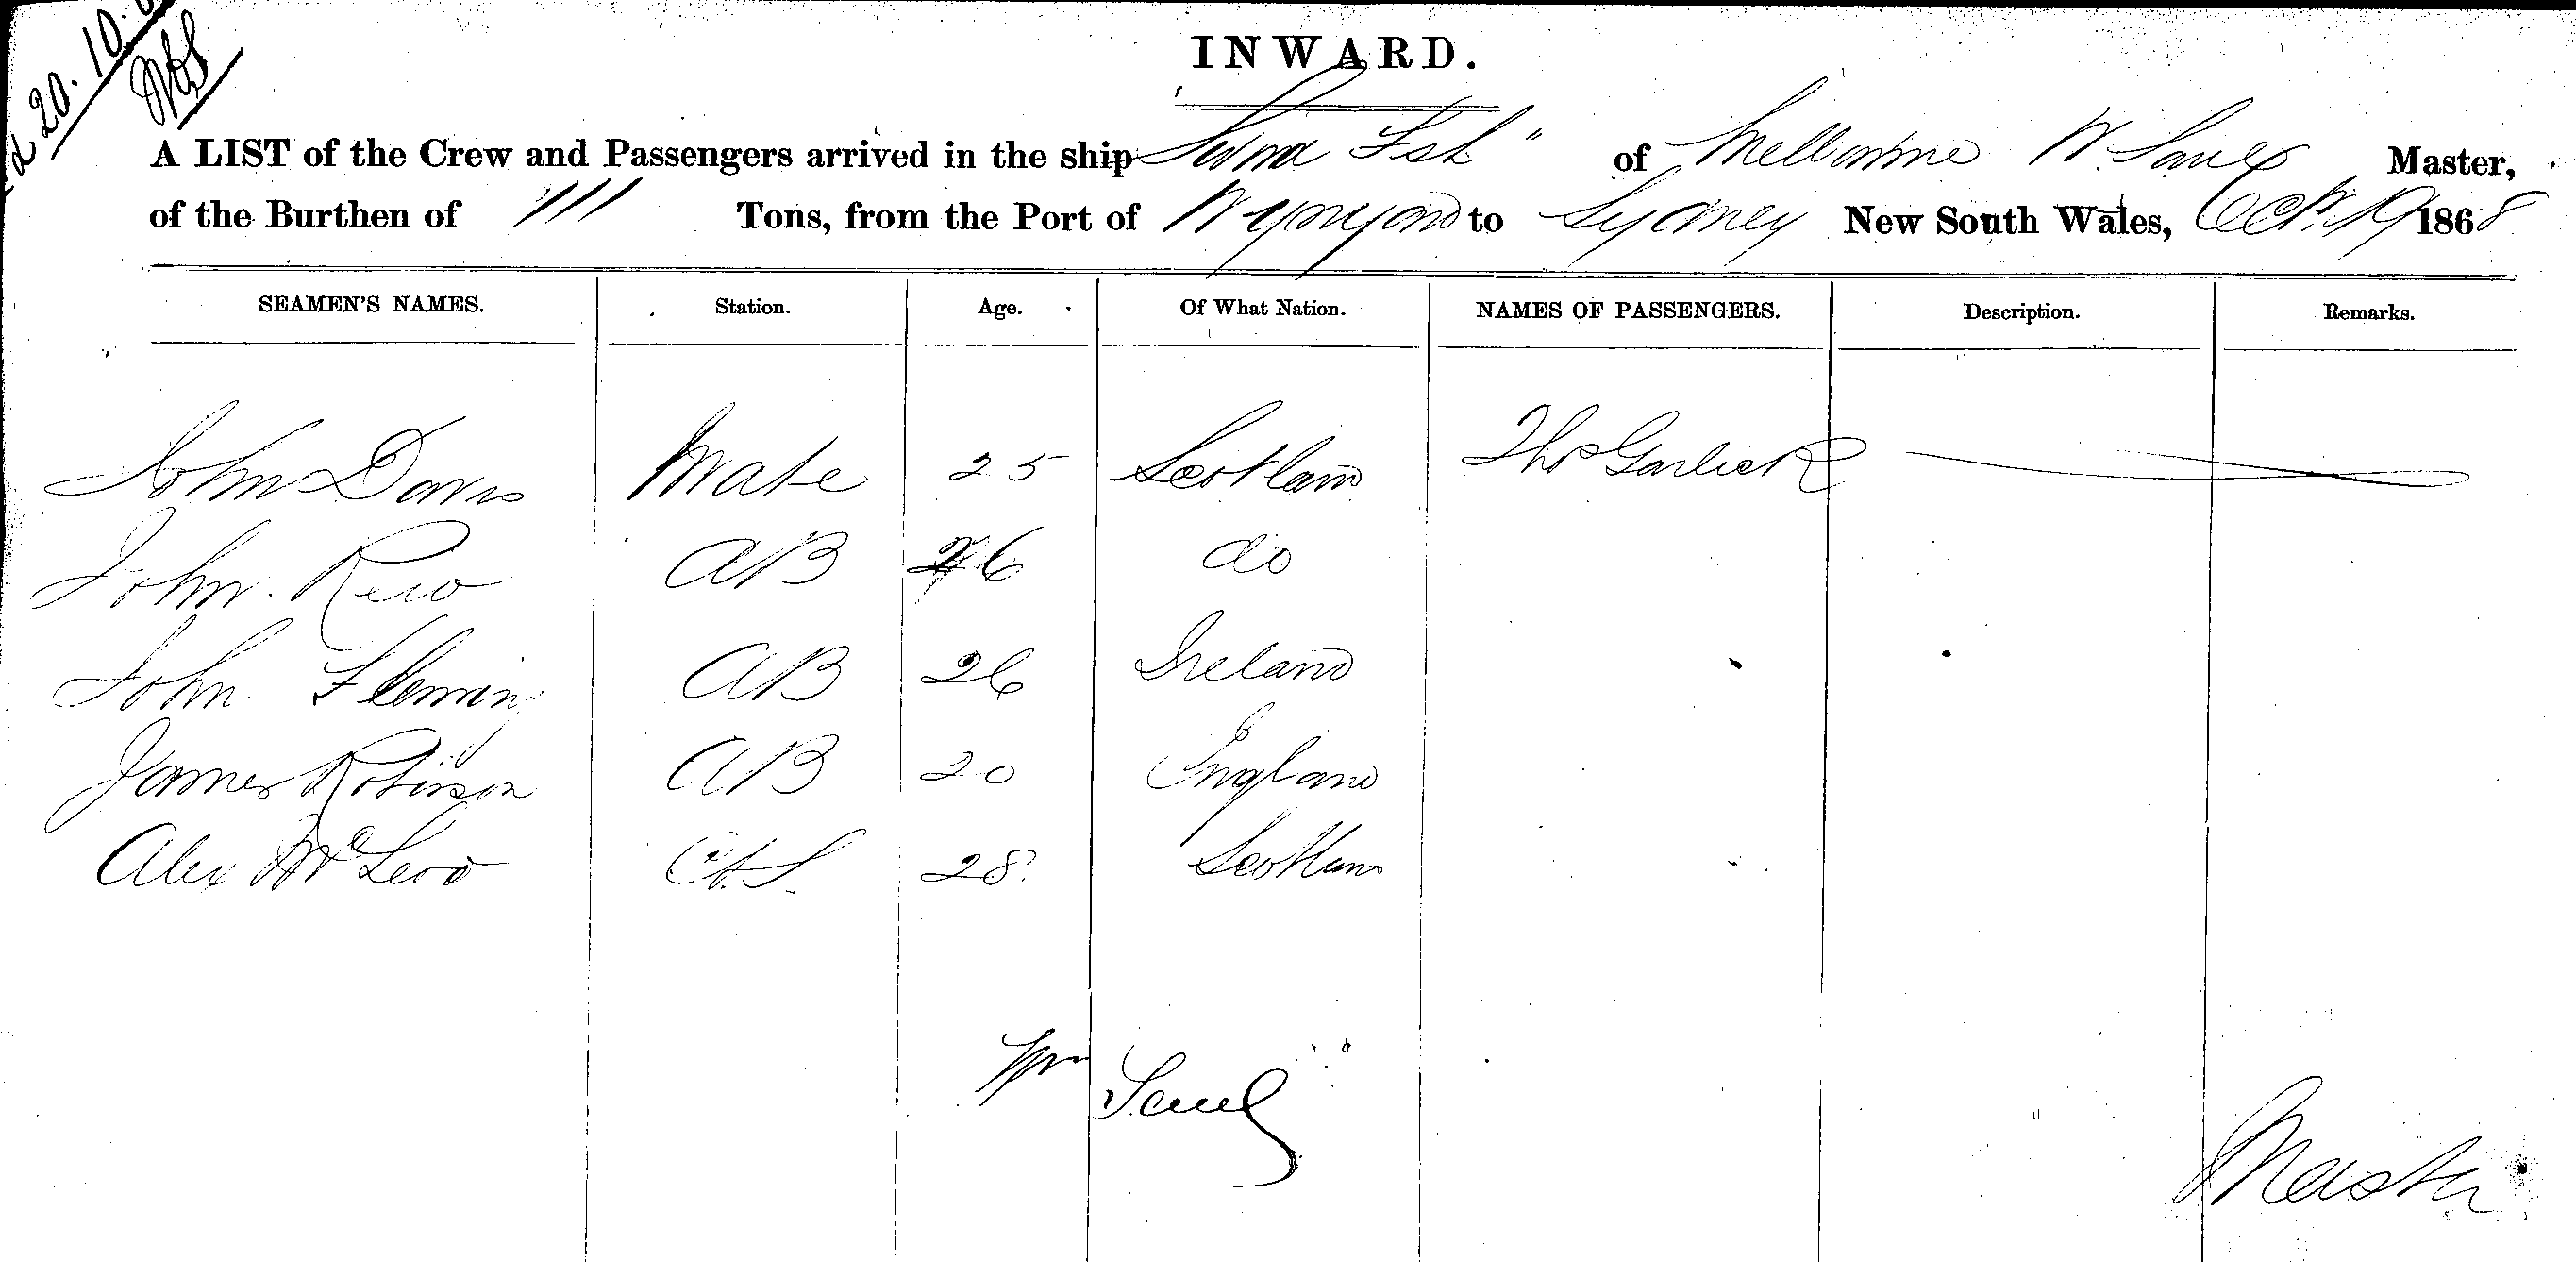 20. 10.
INWARD.
A LIST of the Crew and Passengers arrived in the ship of Melbourne W. Saul Master,
of the Burthen of 111 Tons, from the Port of Wynyard to Sydney New South Wales, Octr. 19 1868
SEAMEN'S NAMES. Station. Age. Of What Nation. NAMES OF PASSENGERS. Description. Remarks.
John Davis Mate 25 Scotland Thos Garlick
John AB 26 do
John Fleming AB 26 Ireland
James Robinson AB 20 England
Alex McLeod 28 Scotland
Wm Saul
Master